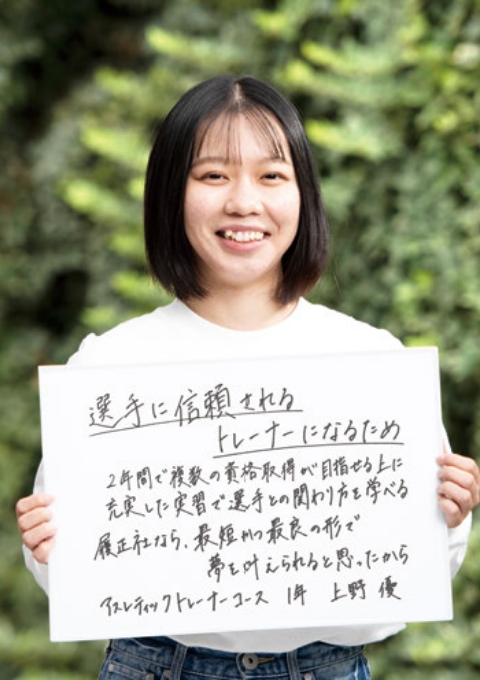 選手に信頼される
トレーナーになるため
2年間で複数の資格取得が目指せる上に
充実した実習で選手との関わり方を学べる
履正社なら、最短かつ最良の形で
夢を叶えられると思ったから
アスレティックトレーナーコース 1年 上野 優